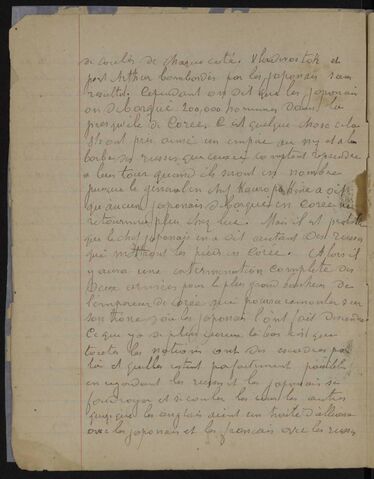 se coulés de chaque coté. Vladivostok et
port Arthur bombardés par les japonais sans
resultat. Cependant on dit que les japonais
on debarqué 200,000 hommes dans la
presqu'ile de Corée. C'est quelque chose cela
ils ont pris ainsi un empire au nez et a la
barbe des russes que ceux ci comptent reprendre
a leur tour quand ils seront en nombre
puisque le général en chef Kouropatkine a dit
qu'aucun japonais debarqués en Corée ne
retournera plus chez lui. Mais il est probable
que le chef japonais en a dit autant des russes
qui mettront les pieds en Corée. Alors il
y aura une extermination complete des
deux armées pour le plus grand bonheur de
l'empereur de Corée qui pourra remonter sur
son trone d'ou les japonais l'ont fait descendre.
Ce que y a de plus curieux la bas c'est que
toutes les nations ont des escadres par
là et qu'elles restent parfaitement paisibles
en regardant les russes et les japonais se
foudroyer et se couler les uns les autres
quoique les anglais aient un traité d'alliance
avec les japonais et les français avec les russes